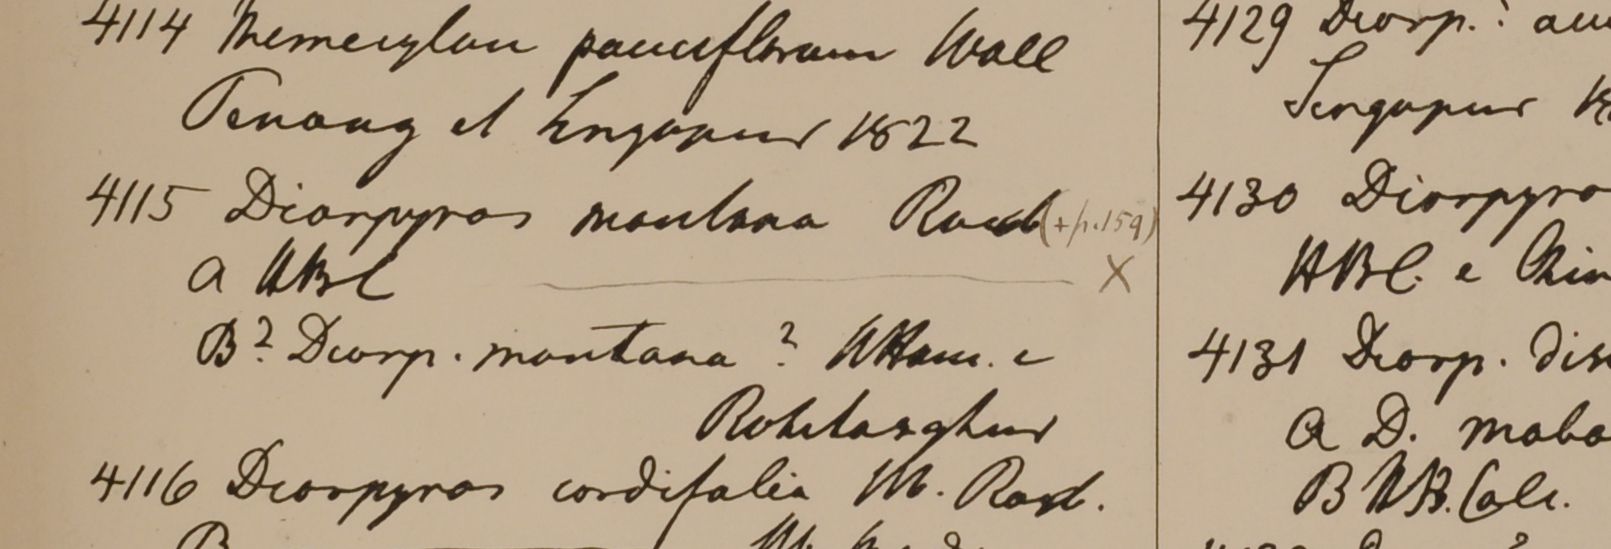 4114 Memecylon pauciflorum Wall
Penang et Singapur 1822
4115 Diospyros montana Roxb (+p.159)
a HBC X
B? Diosp. montana? HHam. e
Rohitasghur
4116 Diospyros cordifolia Hb. Roxb.
B
4129 Diosp.?
Singapur
4130 Diospyro
HBC. e Chin
4131 Diosp. dis
a D. maba
B HB. Calc.